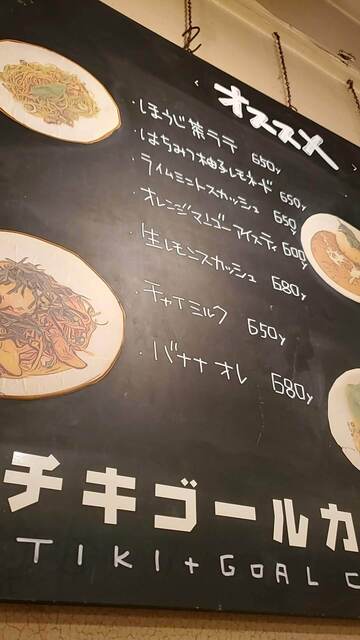 オススメ
・ほうじ茶ラテ 650y
・はちみつ柚子レモネード 650y
・ライムミントスカッシュ 650
・オレンジマンゴーアイスティ 600y
・生レモンスカッシュ 680y
・チャイミルク 650y
・バナナオレ 680y
チキゴールカ
TIKI+GOAL C